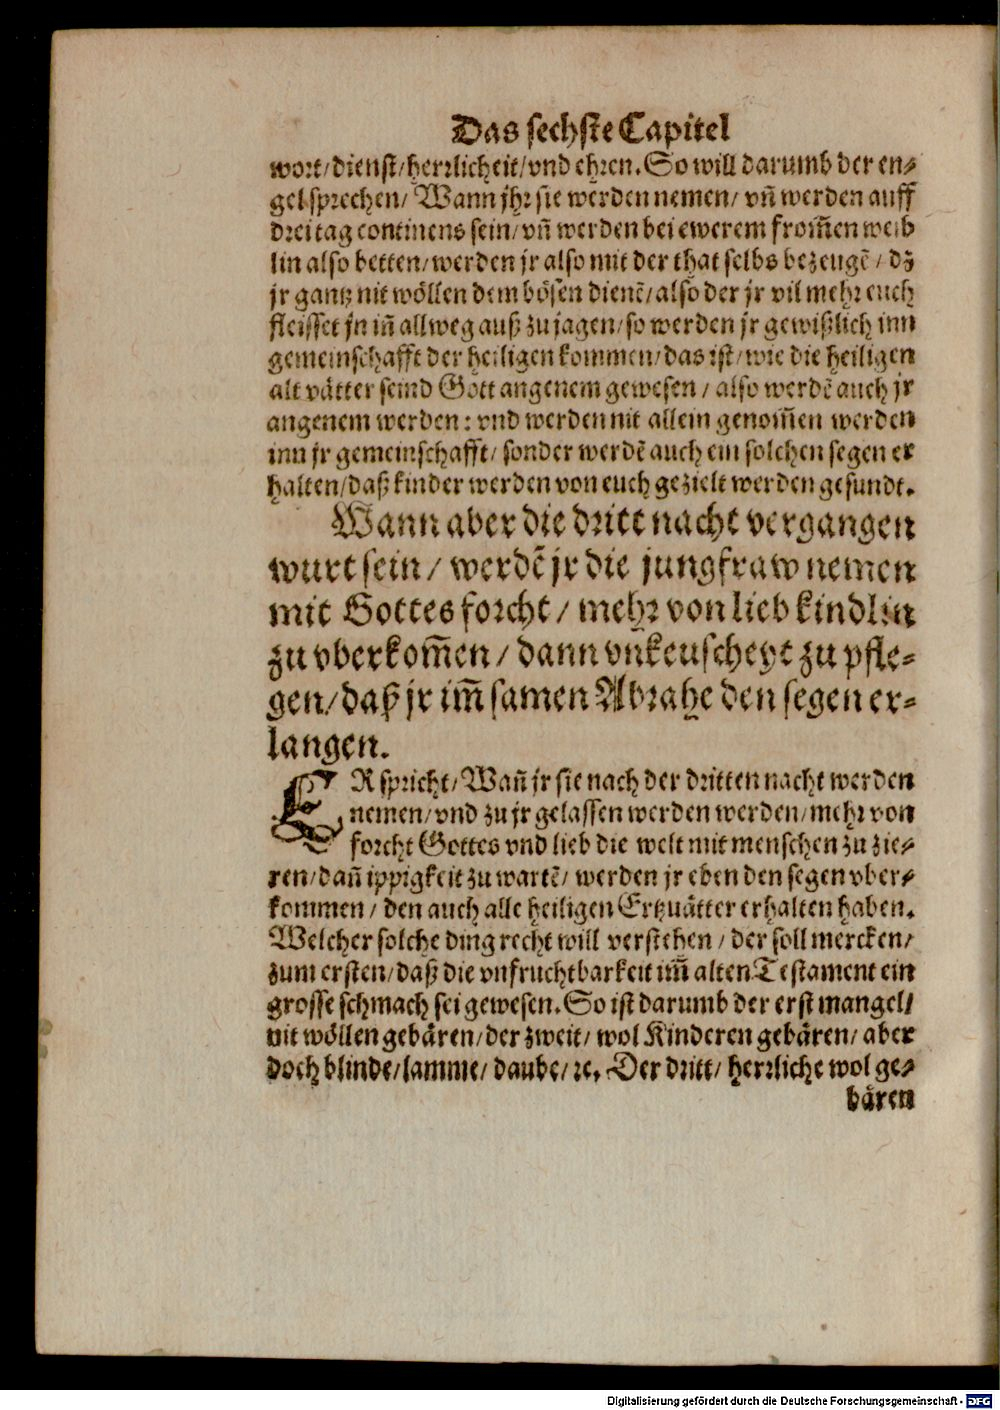 Das sechste Capitel
wort/dienst/herrlicheit/vnd ehren. So will darumb der en⸗
gel sprechen/ Wann jhr sie werden nemen/ vñ werden auff
drei tag continens sein/ vñ werden bei ewerem from̃en weib
lin also betten/werden jr also mit der that selbs bezeugẽ/ dz
jr gantz nit wöllen dem bösen dienẽ/also der jr vil mehr euch
fleisset jn iñ allweg auß zu jagen/so werden jr gewißlich inn
gemeinschafft der heiligen kommen/das ist/wie die heiligen
alt vätter seind Gott angenem gewesen/ also werdẽ auch jr
angenem werden: vnd werden nit allein genom̃en werden
inn jr gemeinschafft/ sonder werdẽ auch ein solchen segen er
halten/daß kinder werden von euch gezielt werden gesundt.
Wann aber die dritt nacht vergangen
wurt sein/ werdẽ jr die jungfraw nemen
mit Gottes forcht/ mehr von lieb kindlin
zu vberkom̃en/ dann vnkeuscheyt zu pfle⸗
gen/daß jr im̃ samen Abrahe den segen er⸗
langen.
ER spricht/Wañ jr sie nach der dritten nacht werden
nemen/vnd zu jr gelassen werden werden/mehr von
forcht Gottes vnd lieb die welt mit menschen zu zie⸗
ren/dañ ippigkeit zu wartẽ/ werden jr eben den segen vber⸗
kommen/ den auch alle heiligen Ertzuätter erhalten haben.
Welcher solche ding recht will verstehen/ der soll mercken/
zum ersten/daß die vnfruchtbarkeit im̃ alten Testament ein
grosse schmach sei gewesen. So ist darumb der erst mangel/
nit wöllen gebären/der zweit/ wol Kinderen gebären/ aber
doch blinde/lamme/ daube/ ꝛc. Der dritt/ herrliche wol ge⸗
bären
Digitalisierung gefördert durch die Deutsche Forschungsgemeinschaft - DFG